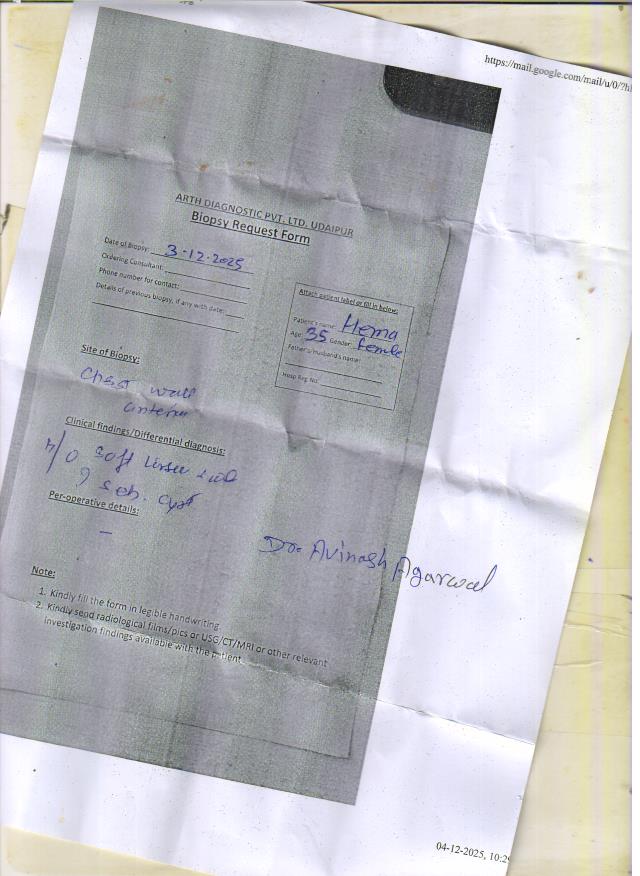 https://mail.google.com/mail/u/0/?
ARTH DIAGNOSTIC PVT. LTD. UDAIPUR
Biopsy Request Form
Date of Biopsy: 3-12-2025
Ordering Consultant:
Phone number for contact:
Details of previous biopsy, if any with date:
Attach patient label or fill in below:
Patient's name: Hema
Age: 35 Gender: female
Father's/Husband's name:
Hosp Reg. No.
Site of Biopsy:
Chest wall
Clinical findings/Differential diagnosis:
soft
seb. cyst
Per-operative details:
-
Dr. Avinash Agarwal
Note:
1. Kindly fill the form in legible handwriting.
2. Kindly send radiological films/pics or USG/CT/MRI or other relevant
investigation findings available with the patient
04-12-2025, 10:29